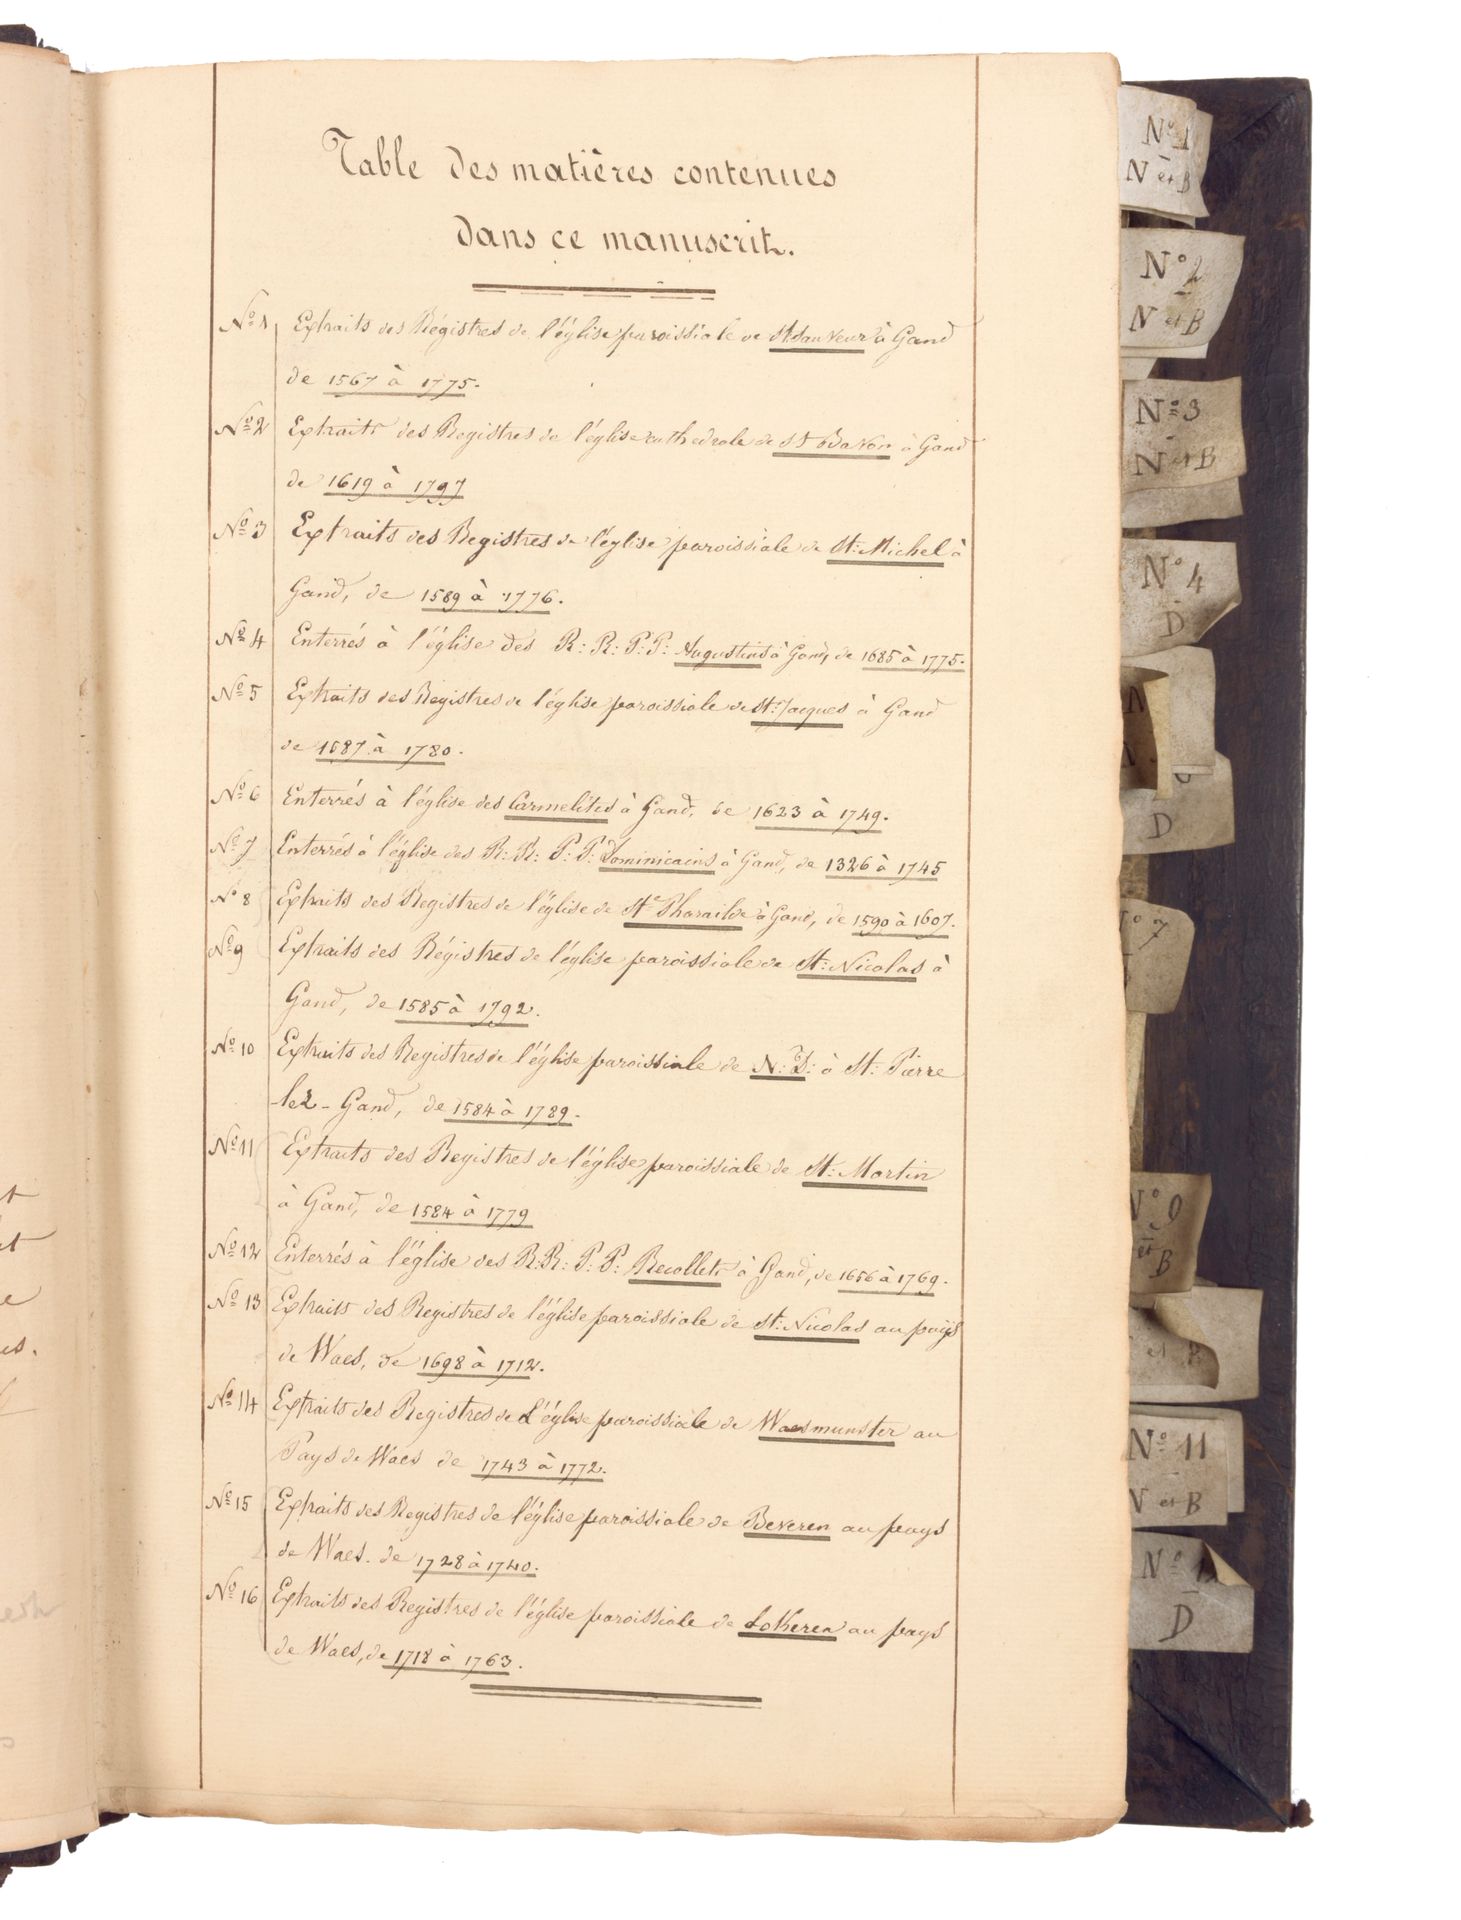 Table des matières contenues
dans ce manuscrit.
No 1 Extraits des Régistres de l'église paroissiale de St Sauveur à Gand
de 1567 à 1775.
No 2 Extraits des Registres de l'église cathedrale de St Bavon à Gand
de 1619 à 1797
No 3 Extraits des Registres de l'église paroissiale de St: Michel à
Gand, de 1589 à 1776.
No 4 Enterrés à l'église des R: R: P: P: Augustins à Gand, de 1685 à 1775.
No 5 Extraits des Registres de l'église paroissiale de St: Jacques à Gand
de 1587 à 1780.
No 6 Enterrés à l'église des Carmelites à Gand, de 1623 à 1749.
No 7 Enterrés à l'église des R: R: P: P: Dominicains à Gand, de 1326 à 1745
No 8 Extraits des Registres de l'église de Ste Pharailde à Gand, de 1590 à 1607.
No 9 Extraits des Régistres de l'église paroissiale de St: Nicolas à
Gand, de 1585 à 1792.
No 10 Extraits des Registres de l'église paroissiale de N: D: à St: Pierre
lez-Gand, de 1584 à 1789.
No 11 Extraits des Registres de l'église paroissiale de St: Martin
à Gand, de 1584 à 1779
No 12 Enterrés à l'église des R: R: P: P: Recollets à Gand, de 1656 à 1769.
No 13 Extraits des Registres de l'église paroissiale de St: Nicolas au pays
de Waes, de 1698 à 1712.
No 14 Extraits des Registres de L'église paroissiale de Waesmunster au
Pays de Waes de 1743 à 1772.
No 15 Extraits des Registres de l'église paroissiale de Beveren au pays
de Waes. de 1728 à 1740.
No 16 Extraits des Registres de l'église paroissiale de Lokeren au pays
de Waes, de 1718 à 1763.
No 1
N et B
No 2
N et B
No 3
N et B
No 4
D
N
D
No 7
No 9
et B
et B
No 11
N et B
No
D